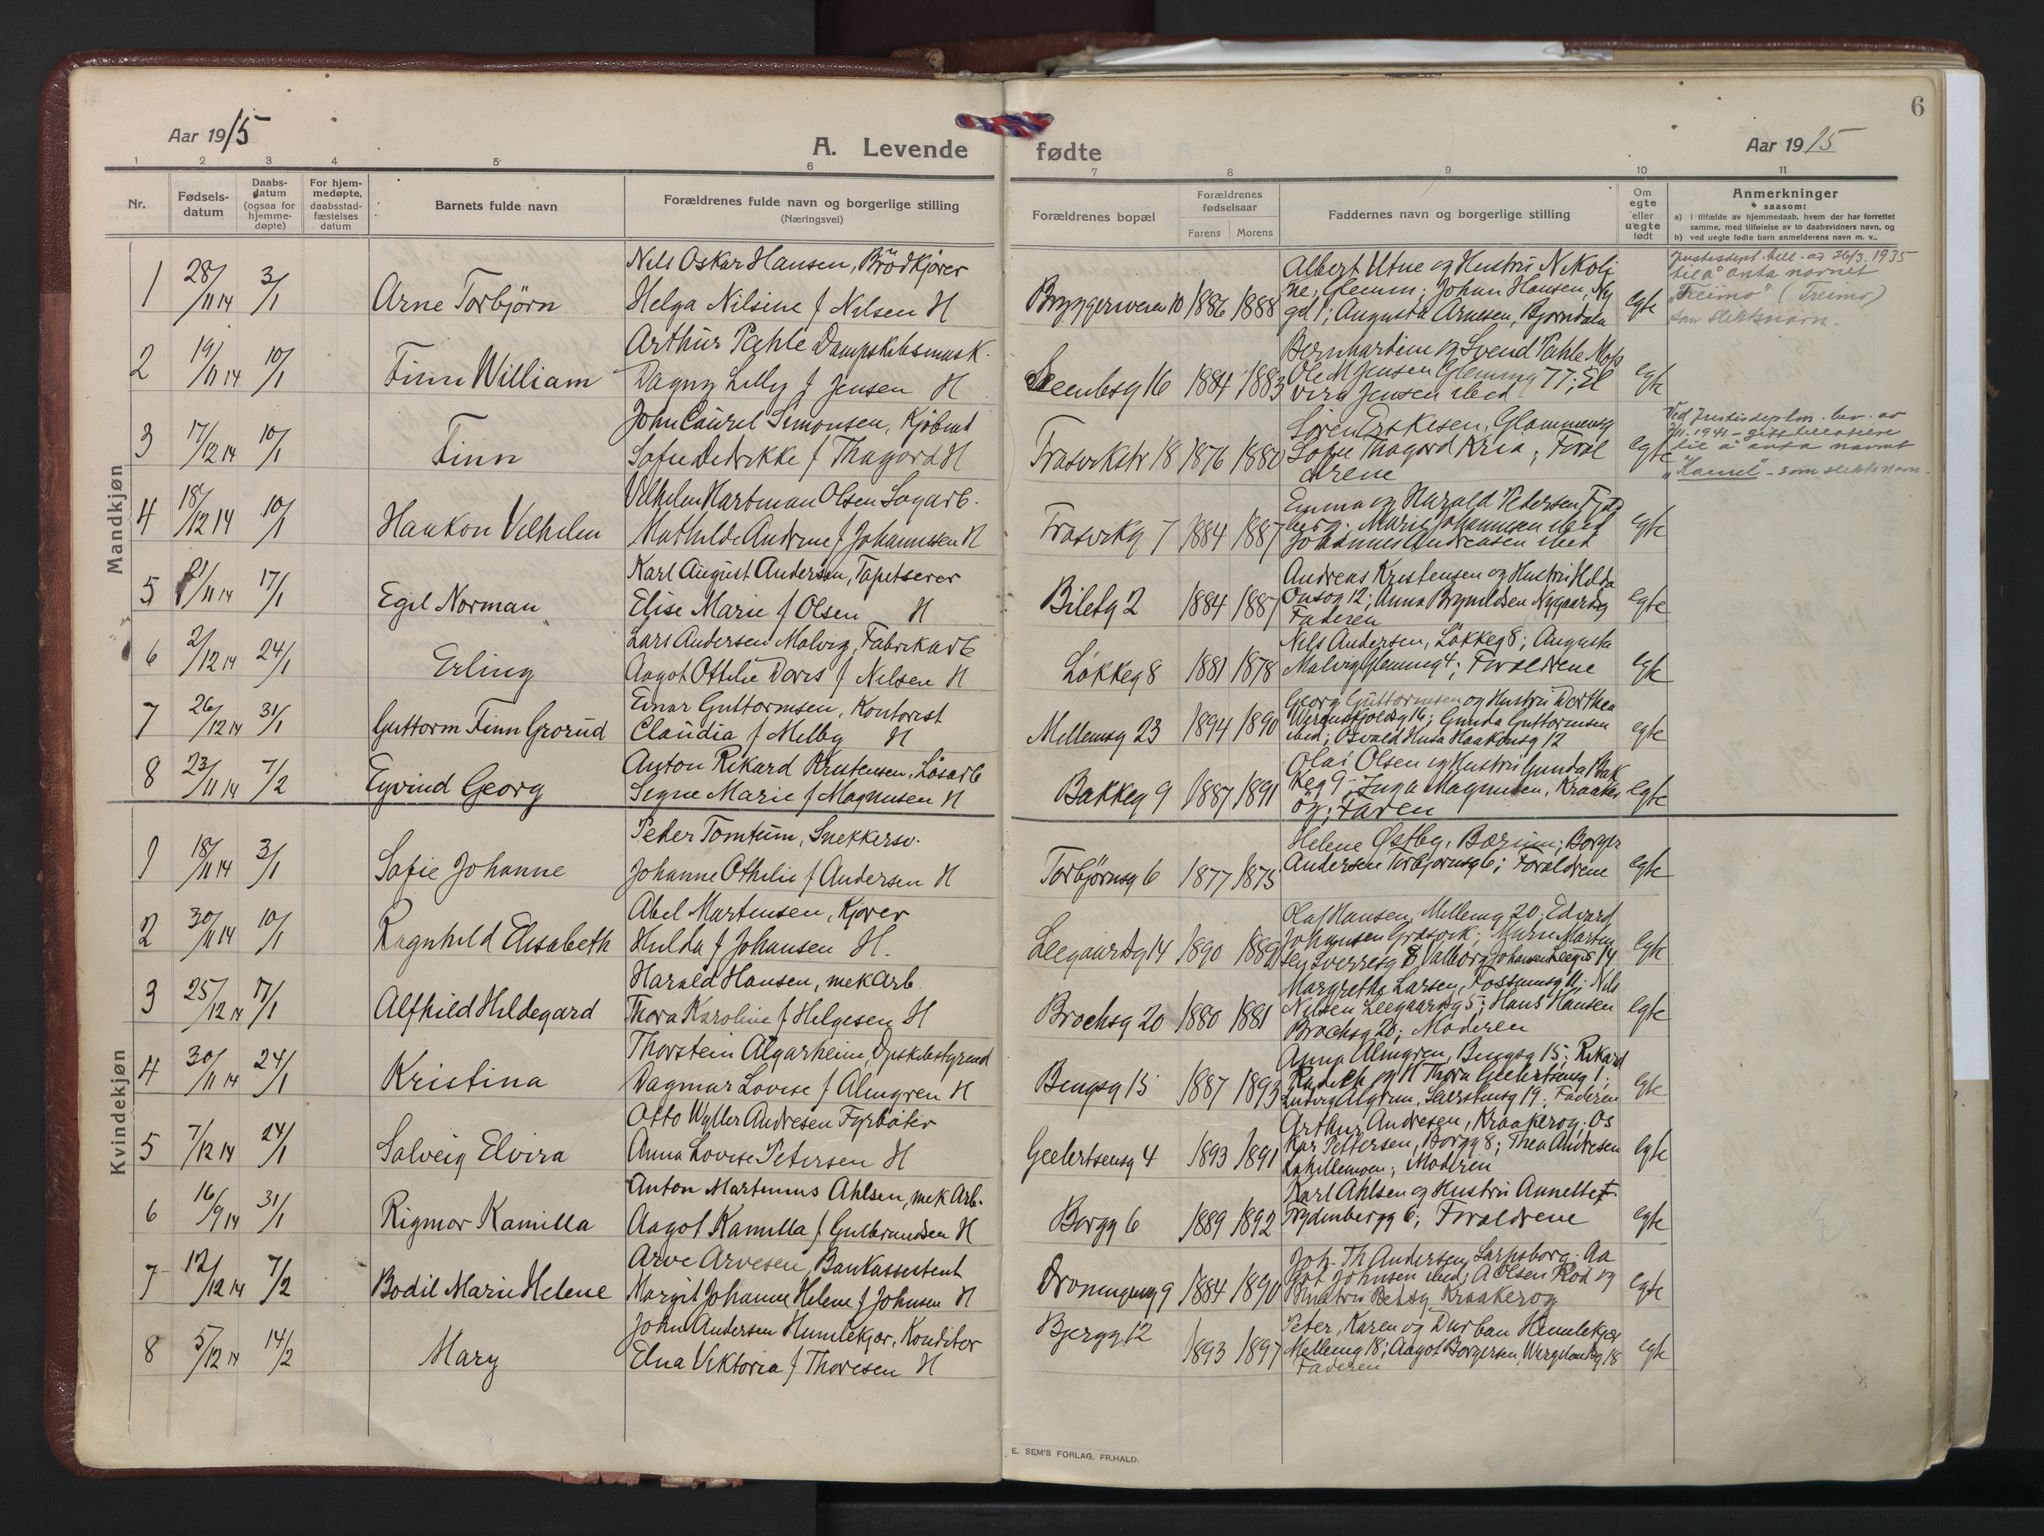 6
Aar 1915
A. Levende
fødte
Aar 1915
1 2 3 4 5 6 7 8 9 10 11
Nr.
Fødsels-
datum
Daabs-
datum
(ogsaa for
hjemme-
døpte)
For hjem-
medøpte,
daabsstad-
fæstelses
datum
Barnets fulde navn
Forældrenes fulde navn og borgerlige stilling
(Næringsvei)
Forældrenes bopæl
Forældrenes
fødselsaar
Farens Morens
Faddernes navn og borgerlige stilling
Om
egte
eller
uegte
født
Anmerkninger
saasom:
a) i tilfælde av hjemmedaab, hvem der har forrettet
samme, med tilføielse av to daabsvidners navn, og
b) ved uegte fødte barn anmelderens navn m. v..
Mandkjøn
1 28/11 14 3/1 Arne Torbjørn
Nils Oskar Hansen, Brödkjører
Helga Nilsine f Nilsen H
1886 1888
Albert Utne og Hustru Nikoli
ne, Glemm; Johan Hansen, Ny
gd 1; Augusta Arnesen, Bjørndalen
egte
Justisdept. bell. av 26/3. 1935
til å anta navnet
"Freimo" (Treimo)
som slektsnavn.
2 19/11 14 10/1 Finn William
Arthur Pahle Dampskibsmask.
Dagny Lilly f Jensen H
1884 1883
Bernhardine og Svend Pahle Moss
Ole M Jensen Glemmg 77; El
vira Jensen ibid
egte
3 17/12 14 10/1 Finn
John Laurel Simonsen, Kjøbmd
Sofie Dedrikke f Thagord H
Traverkstr 18 1876 1880
Søren Erksen, Glommensg
Sofie Thagord Kria; Foræl
drene
egte
Ved Justisdeptm. bev. av
1941 - gitt tillatelse
til å anta navnet
"Kamel" - som slektsnavn.
4 18/12 14 10/1 Haakon Vilhelm
Vilhelm Hartman Olsen Sagarb.
Mathilde Andrine f Johannessen H
7 1884 1887
Emma og Harald Petersen
Marie Johannesen ibid
Johannes Andreasen ibid
egte
5 21/11 14 17/1 Egil Norman
Karl August Andersen, Tapetserer
Elise Marie f Olsen H
Biletsg 2 1884 1887
Andreas Kristensen og Hustru Hilda
Onsøg 12; Anna Brynildsen Nygaardsg
Faderen
egte
6 2/12 14 24/1 Erling
Lars Andersen Malvig, Fabrikarb
Aagot Ottilie Doris f Nilsen H
Løkkeg 8 1881 1878
Nils Andersen, Løkkeg 8; Augusta
Malvig Glemmg 4; Forældrene
egte
7 26/12 14 31/1 Guttorm Finn Grorud
Einar Guttormsen, Kontorist
Claudia f Melby H
Mellemsg 23 1894 1890
Georg Guttormsen og Hustru Dorthea
Werenskjoldsg 16; Gunda Guttormsen
ibid; Osvald Husa Haakonsg 12
egte
8 23/11 14 7/2 Eyvind Georg
Anton Rikard Kristensen, Løsarb
Signe Marie f Magnusen H
Bakkeg 9 1887 1891
Olai Olsen og Hustru Gunda Bak
keg 9; Inga Magnusen, Kraaker
øy; Faren
egte
Kvindekjøn
1 18/11 14 3/1 Sofie Johanne
Peder Tomtum, Snekkersv.
Johanne Othilie f Andersen H
Torbjørnsg 6 1877 1875
Helene Østby, Bærum; Borger
Andersen Torbjørnsg 6; Forældrene
egte
2 30/11 14 10/1 Ragnhild Elisabeth
Abel Martensen, Kjører
Hulda f Johansen H.
Leegaardsg 14 1890 1889
Olaf Hansen, Mellemg 20; Edvard
Johansen Græsvik; Marie Marten
sen Sverresg 8 Valborg Johansen Leegds 14
egte
3 25/12 14 17/1 Alfhild Hildegard
Harald Hansen, mek Arb.
Thora Karoline f Helgesen H
Brochsg 20 1880 1881
Margrethe Larsen, Fossumsg 11; Nils
Nilsen Leegaardsg 5; Hans Hansen
Brochsg 20; Moderen
egte
4 30/11 14 24/1 Kristina
Thorstein Algarheim, Dpskibstyrmd
Dagmar Lovise f Almgren H
Bingsg 15 1887 1893
Anna Almgren, Bingsg 15; Rikard
Radich og H Thora Geelertsensg 1;
Ludvig Almgren, 19; Faderen
egte
5 7/12 14 24/1 Solveig Elvira
Otto Wyller Andresen Fyrbøter
Anna Lovise Petersen H
Geelertsensg 4 1893 1891
Arthur Andresen, Kraakerøg. Os
kar Pettersen, Borgg 8; Thea Andresen
Moderen
egte
6 16/9 14 31/1 Rigmor Kamilla
Anton Martinius Ahlsen, mek Arb.
Aagot Kamilla f Gulbrandsen H
Borgg 6 1889 1892
Karl Ahlsen og Hustru Annette F.
Trydenbergg 6; Forældrene
egte
7 12/12 14 7/2 Bodil Marie Helene
Arve Arvesen, Bankassistent
Margit Johanne Helene f Johnsen H
Droningensg 9 1884 1890
Joh. Th Andersen, Sarpsborg. Aa
got Johnsen ibid; A Olsen Rød og
Hustru Betsy Kraakerøy
egte
8 5/12 14 14/2 Mary
John Andersen Humlekjær, Konditor
Elna Viktoria f Thoresen H
Bjergg 12 1893 1897
Peter, Karen og Durban Humlekjær
Mellemg 18; Aagot Borgersen, Wergelandsg 18
Faderen
egte
E. SEM'S FORLAG, FR.HALD.